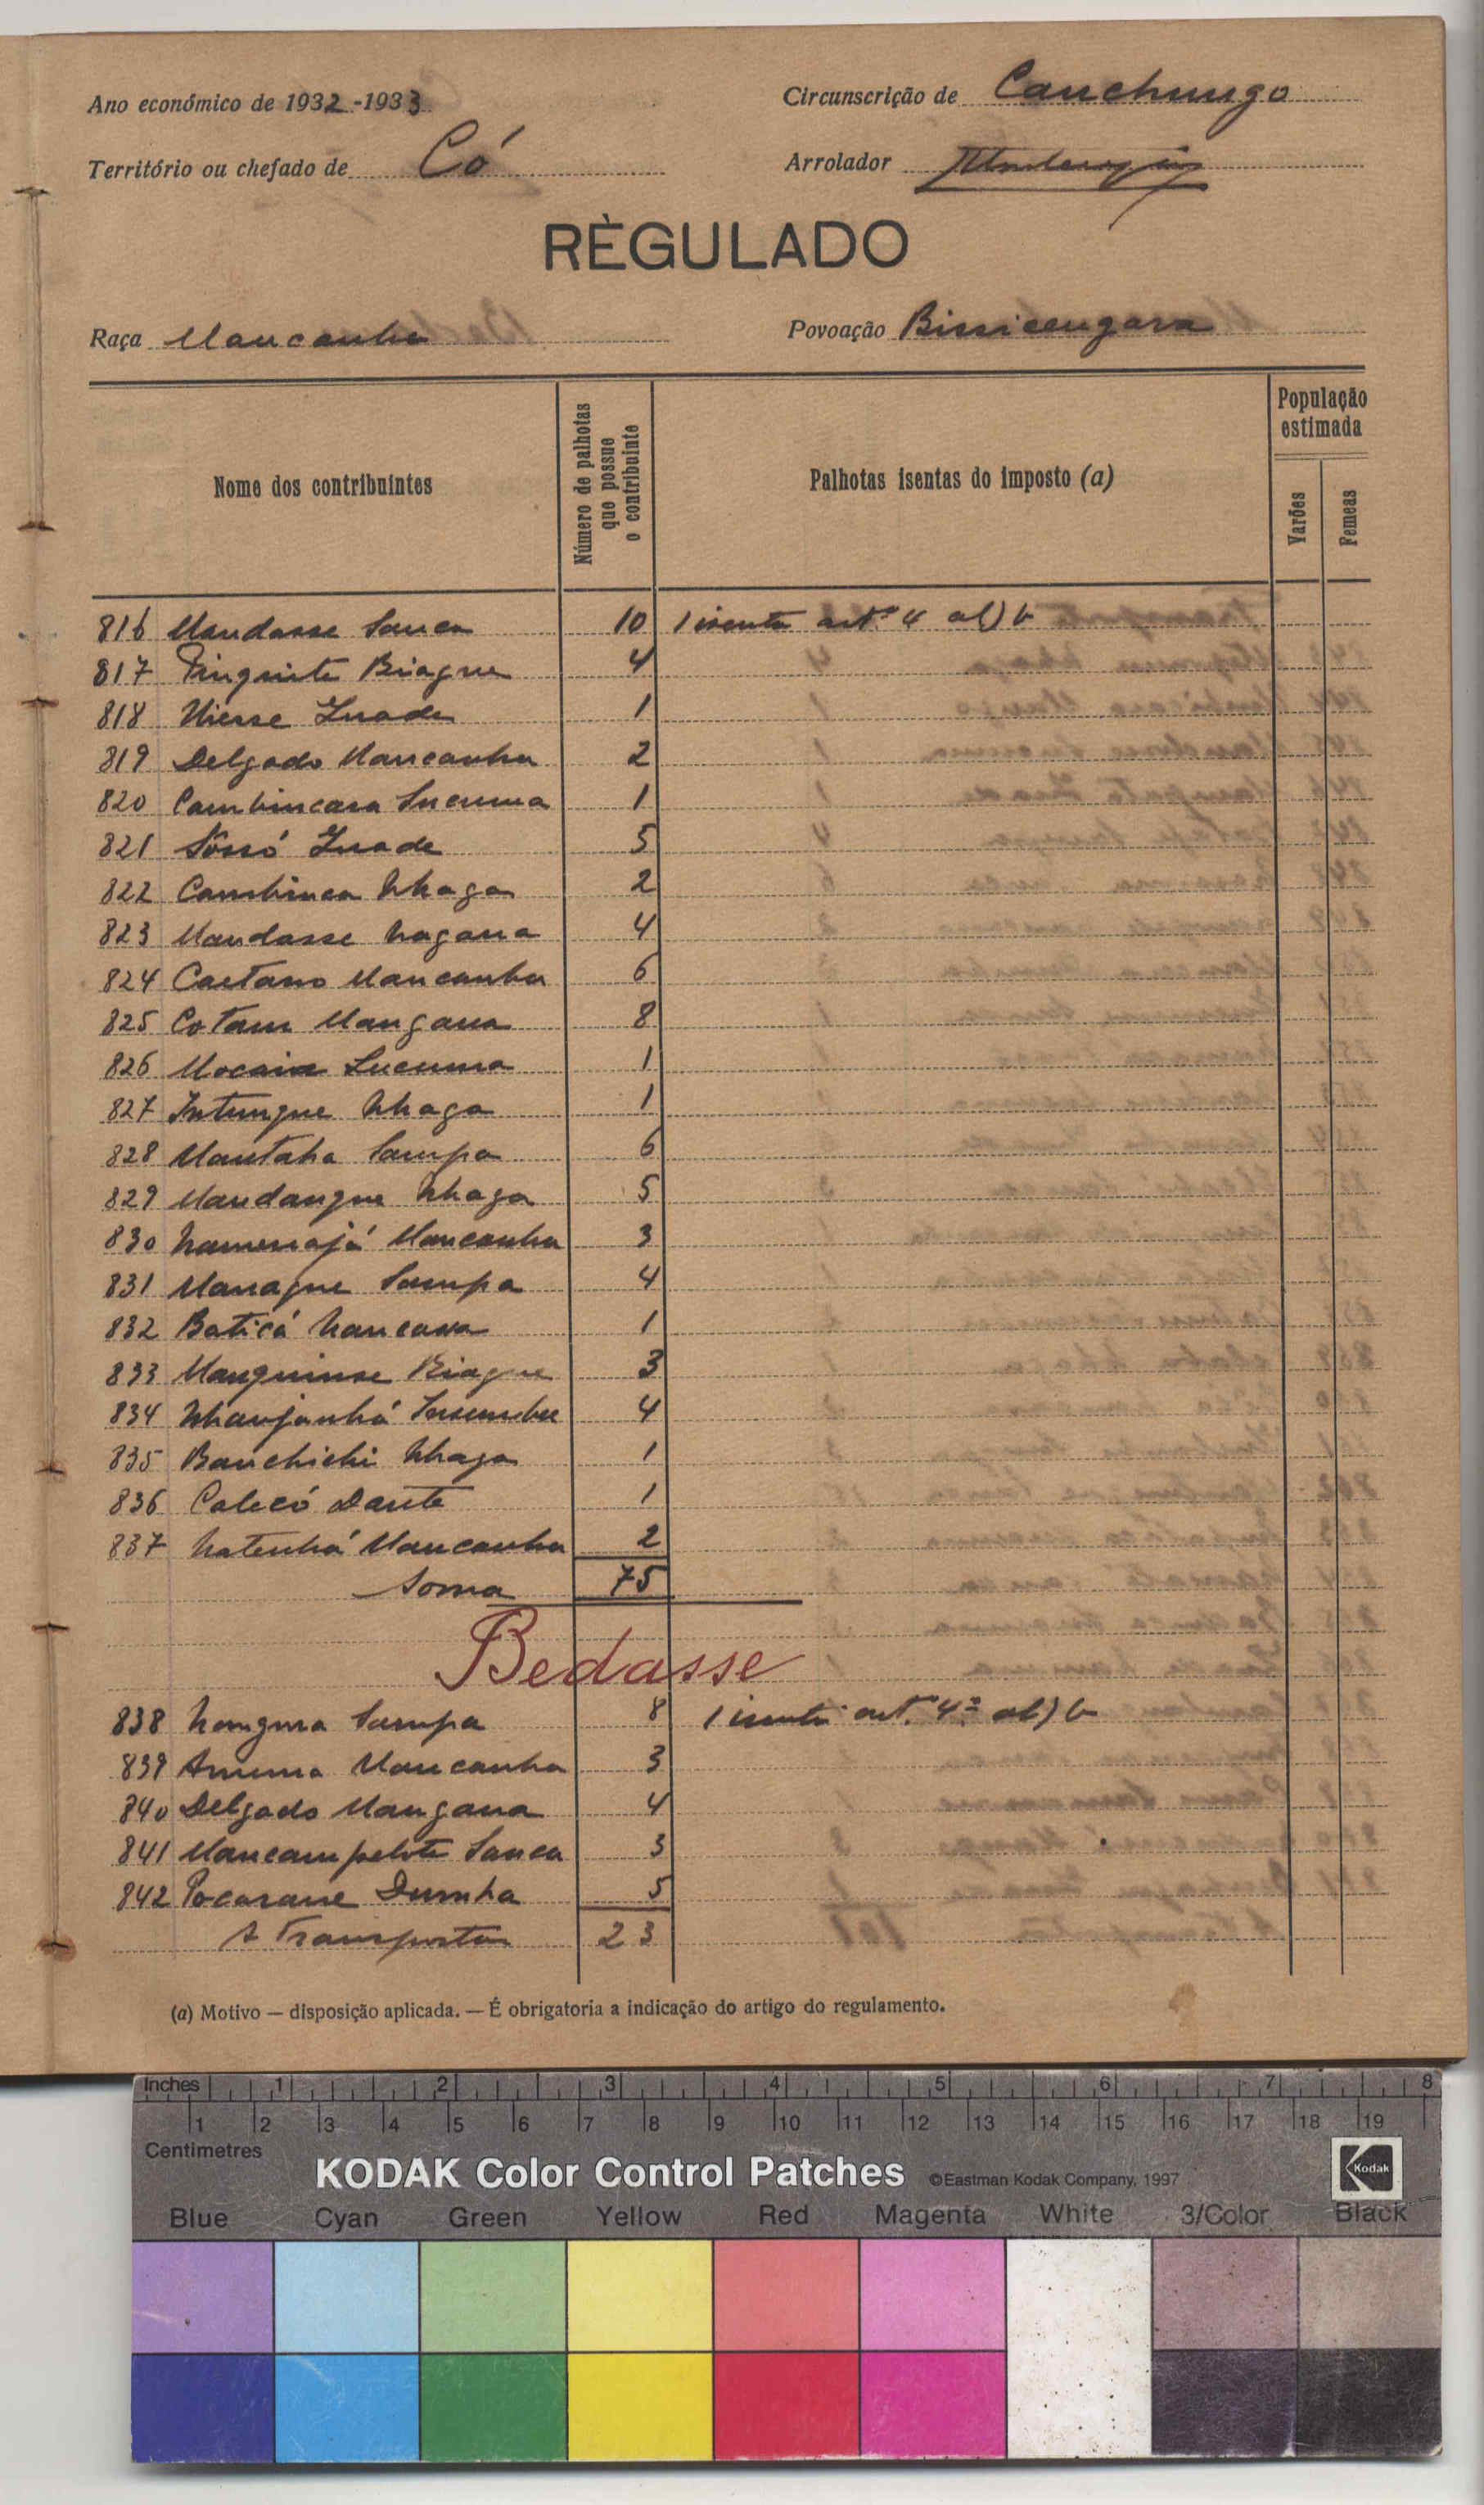 Ano económico de 1932-1933
Circunscrição de Canchungo
Território ou chefado de Có
Arrolador
RÈGULADO
Raça Mancanha
Povoação
Nome dos contribuintes
Número de palhotas que possue o contribuinte
Palhotas isentas do imposto (a)
População estimada
Varões
Femeas
816 Mandasse Sanca 10 1 isenta artº 4 al) b
817 Biague 4
818 Inade 1
819 Delgado Mancanha 2
820 Cambincara Sucuma 1
821 Sôssó Inade 5
822 Cambinca Nhaga 2
823 Mandasse Nagana 4
824 Caetano Mancanha 6
825 Cotam Mangana 8
826 Mocaia Sucuma 1
827 Intungue Nhaga 1
828 Mantaha Sampa 6
829 Mandangue Nhaga 5
830 Mancanha 3
831 Manague Sampa 4
832 Baticá 1
833 Manguinse Biague 3
834 Nhanjanhá 4
835 Banchichi Nhaga 1
836 Calecó Dante 1
837 Natenhá Mancanha 2
Soma 75
Bedasse
838 Nongura Sampa 8 1 isenta art. 4º al) b
839 Amema Mancanha 3
840 Delgado Mangana 4
841 Mancampelote Sanca 3
842 Pocarane Dumha 5
A Transportar 23
(a) Motivo — disposição aplicada. — É obrigatoria a indicação do artigo do regulamento.
Inches 1 2 3 4 5 6 7 8
1 2 3 4 5 6 7 8 9 10 11 12 13 14 15 16 17 18 19
Centimetres
KODAK Color Control Patches ©Eastman Kodak Company, 1997 Kodak
Blue Cyan Green Yellow Red Magenta White 3/Color Black